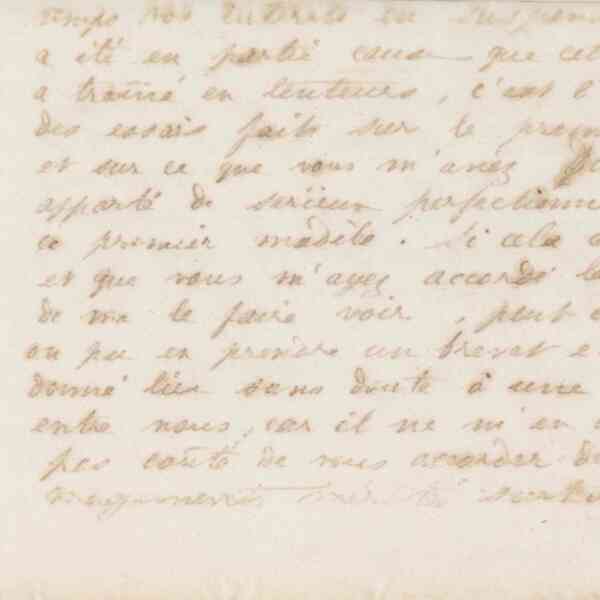 temps vos intérêts en suspens
a été en partie cause que cet
a trainé en lenteurs, c'est l'
des essais faits sur le prem
et sur ce que vous m'avez
apporté de serieux perfectionne
ce premier modèle. Si cela
et que vous m'ayez accordé
de me le faire voir, peut
ou pu en prendre un brevet e
donné lieu sans doute à une
entre nous, car il ne m'en a
pas couté de vous accorder